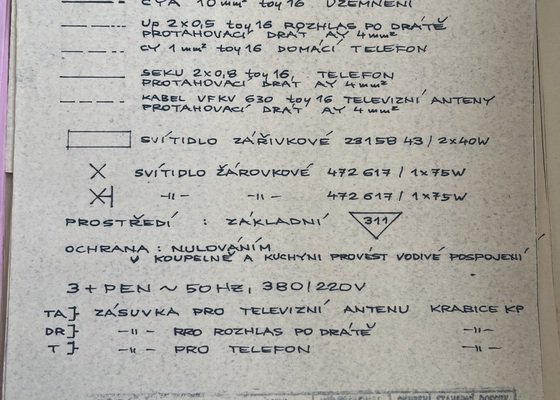 CYA 10 mm² toy 16 UZEMNĚNÍ
Up 2x0,5 toy 16 ROZHLAS PO DRÁTĚ
PROTAHOVACÍ DRÁT AY 4 mm²
CY 1 mm² toy 16 DOMÁCÍ TELEFON
SEKU 2x0,8 toy 16, TELEFON
PROTAHOVACÍ DRÁT AY 4 mm²
KABEL VFKV 630 toy 16 TELEVIZNÍ ANTENY
PROTAHOVACÍ DRÁT AY 4 mm²
SVÍTIDLO ZÁŘIVKOVÉ 23158 43 / 2x40W
SVÍTIDLO ŽÁROVKOVÉ 472 617 / 1x75W
-||- -||- 472 617 / 1x75W
PROSTŘEDÍ : ZÁKLADNÍ 311
OCHRANA : NULOVÁNÍM
V KOUPELNĚ A KUCHYNI PROVÉST VODIVÉ POSPOJENÍ
3 + PEN ~ 50 HZ, 380/220V
TA} ZÁSUVKA PRO TELEVIZNÍ ANTENU KRABICE KP
DR} -||- PRO ROZHLAS PO DRÁTĚ -||-
T} -||- PRO TELEFON -||-